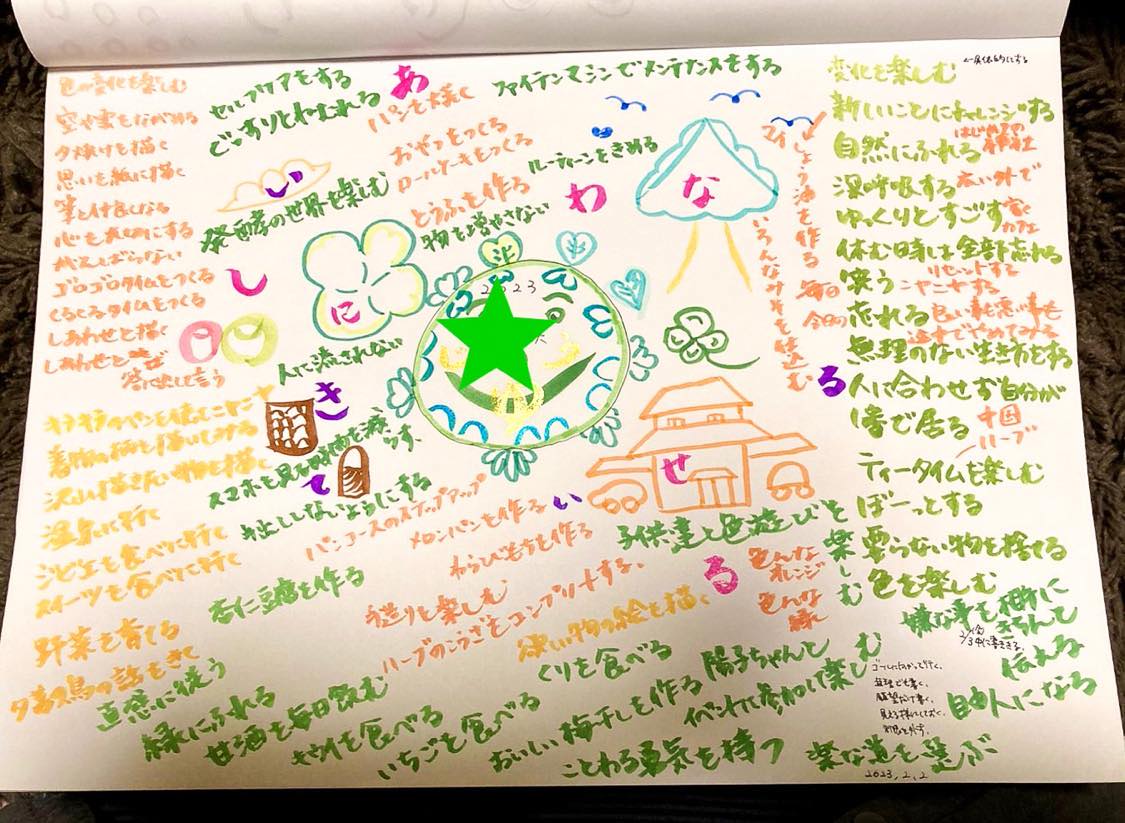 色の変化を楽しむ
空や雲をながめる
夕焼けを描く
思いを紙に描く
筆と仲良しになる
心を大切にする
ゴロゴロタイムをつくる
くるくるタイムをつくる
しあわせと描く
しあわせと
答に出して言う
キラキラのペンを使んでニヤニヤ
着物の柄を描いてみる
沢山描きたい物を描く
温泉に行く
ジビエを食べに行く
スイーツを食べに行く
野菜を育てる
セルフケアをする
ぐっすりとねむれる
あ
ファイテンマシンでメンテナンスをする
パンを焼く
おやつをつくる
ロールケーキをつくる
とうふを作る
ルーティーンをきめる
発酵の世界を楽しむ
物を増やさない
わ
な
し
に
2023
マイ
しょう油を作る
いろんなみそを仕込む
人に流されない
き
て
せ
い
る
る
スマホを見る時間を減らす、
パンコースのステップアップ
メロンパンを作る
わらびもちを作る
杏仁豆腐を作る
手造りを楽しむ
ハーブのこうざをコンプリートする、
欲しい物の絵を描く
子供達と色遊びを
楽しむ
色んな
オレンジ
色んな
緑
変化を楽しむ
新しいことにチャレンジする
自然にふれる
はじめての
神社
深呼吸する
広い外で
ゆっくりとすごす
カフェ
休む時は全部忘れる
リセットする
笑う
ニヤニヤする
毎日
今日の
忘れる
良い事も悪い事も
無理のない生き方をする
人に合わせず自分が
1番で居る
中国
ハーブ
ティータイムを楽しむ
ぼーっとする
要らない物を捨てる
色を楽しむ
嫌な事を相手に
きちんと
伝える
自由人になる
直感に従う
緑にふれる
甘酒を毎日飲む
キウイを食べる
いちごを食べる
くりを食べる
おいしい梅干しを作る
陽子ちゃんと
イベントに参加して楽しむ
ことわる勇気を持つ
楽な道を選ぶ
ゴールに向かって行く、
無理でも書く、
願望だけ書く、
見える様にしておく、
2023,2,2